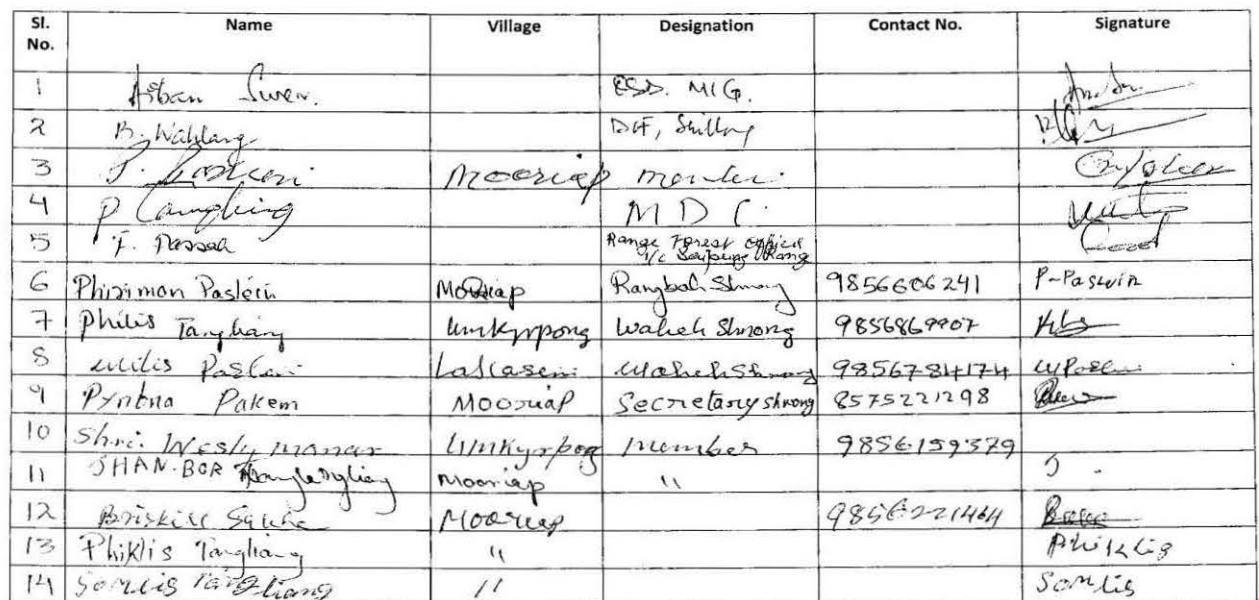 Sl. No. Name Village Designation Contact No. Signature
1 Aiban Swer. ESD. MIG.
2 B. Wahlang DCF, Shillong
3 P. Mooriap member
4 P M D C.
5 F. Passah Range Forest Officer i/c Saipung Range
6 Phirimon Paslein Mooriap Rangbah Shnong 9856606241 P-Paslein
7 Philis Tangliang Umkyrpong Waheh Shnong 9856869907
8 Wilis Paslein Lakasein Waheh Shnong 9856784174 W Paslein
9 Pyntna Pakem Mooriap Secretary Shnong 8575221298
10 Shri. Wesly Manar Umkyrpog member 9856159379
11 SHAN-BOR Mooriap "
12 Briskill Mooriap 9856221464
13 Phiklis Tangliang " Phiklis
14 Somlis Tangliang " Somlis